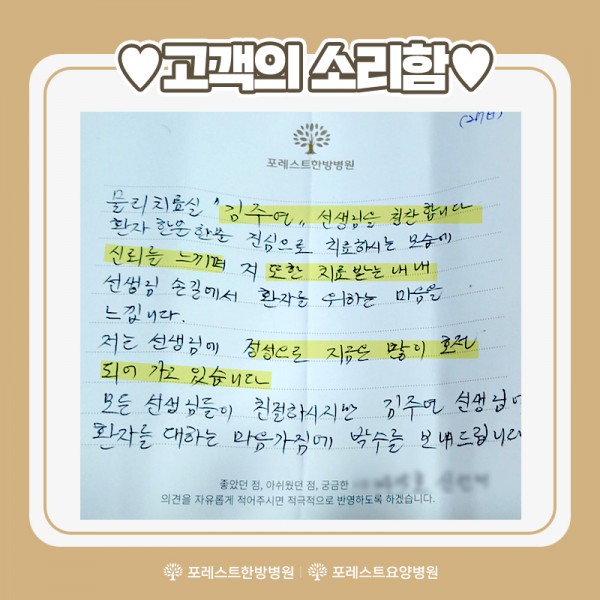 ♥고객의 소리함♥
(207호)
포레스트한방병원
물리치료실 "김주연" 선생님을 칭찬합니다
환자 한분한분 진심으로 치료하시는 모습에
신뢰를 느끼며 저 또한 치료받는 내내
선생님 손길에서 환자를 위하는 마음을
느낍니다.
저는 선생님에 정성으로 지금은 많이 호전
되어 가고 있습니다
모든 선생님들이 친절하시지만 김주연 선생님에
환자를 대하는 마음가짐에 박수를 보내드립니다
좋았던 점, 아쉬웠던 점, 궁금한
의견을 자유롭게 적어주시면 적극적으로 반영하도록 하겠습니다.
포레스트한방병원 | 포레스트요양병원